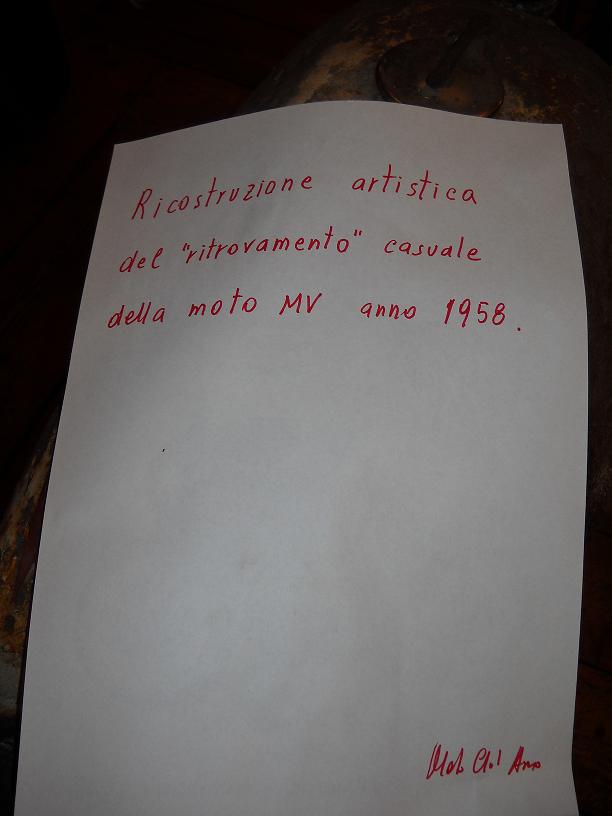 Ricostruzione artistica
del "ritrovamento" casuale
della moto MV anno 1958.